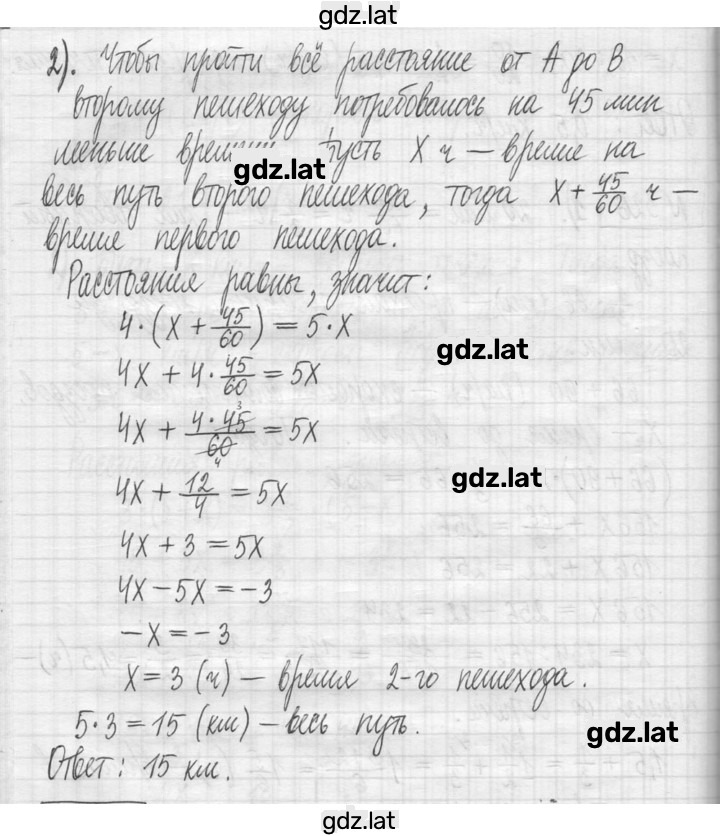 gdz.lat
2). Чтобы пройти всё расстояние от А до В
второму пешеходу потребовалось на 45 мин
меньше Пусть X ч — время на
gdz.lat
весь путь второго пешехода, тогда X + 45/60 ч —
время первого пешехода.
Расстояния равны, значит:
4·(X + 45/60) = 5·X
gdz.lat
4X + 4·45/60 = 5X
4X + 4·45/60 = 5X
3
4
gdz.lat
4X + 12/4 = 5X
4X + 3 = 5X
4X − 5X = −3
−X = −3
X = 3 (ч) — время 2-го пешехода.
5·3 = 15 (км) — весь путь.
gdz.lat
Ответ: 15 км.
gdz.lat